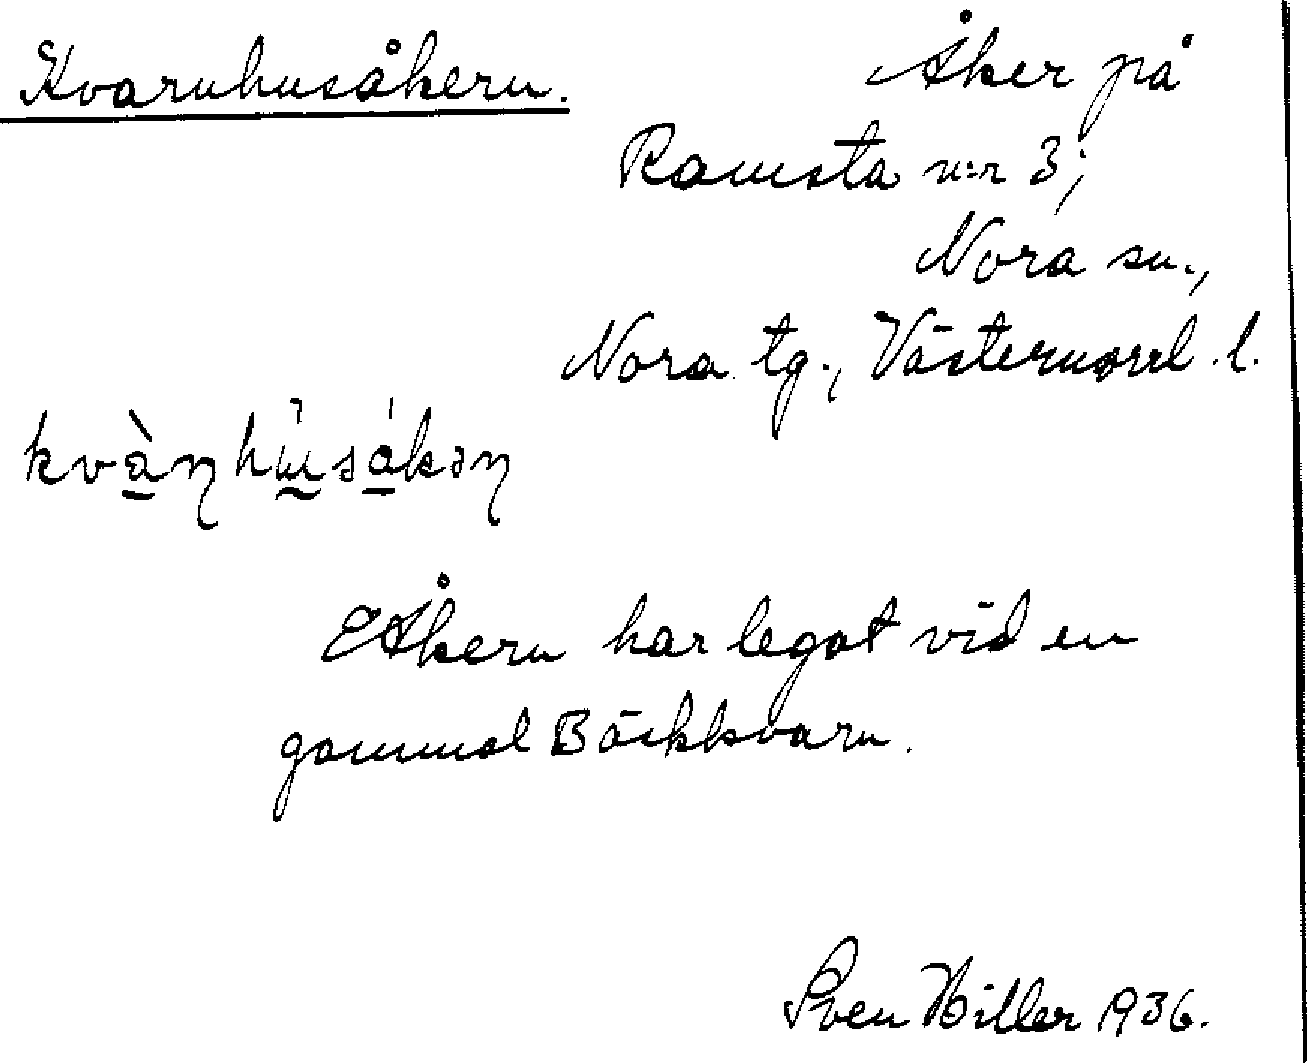 Kvarnhusåkern. Åker på
Ramsta n:r 3;
Nora sn.,
Nora tg., Västernorrl. l.
kvàɳhʉ̀sákəɳ
Åkern har legat vid en
gammal Bäckkvarn.
Sven Hiller 1936.